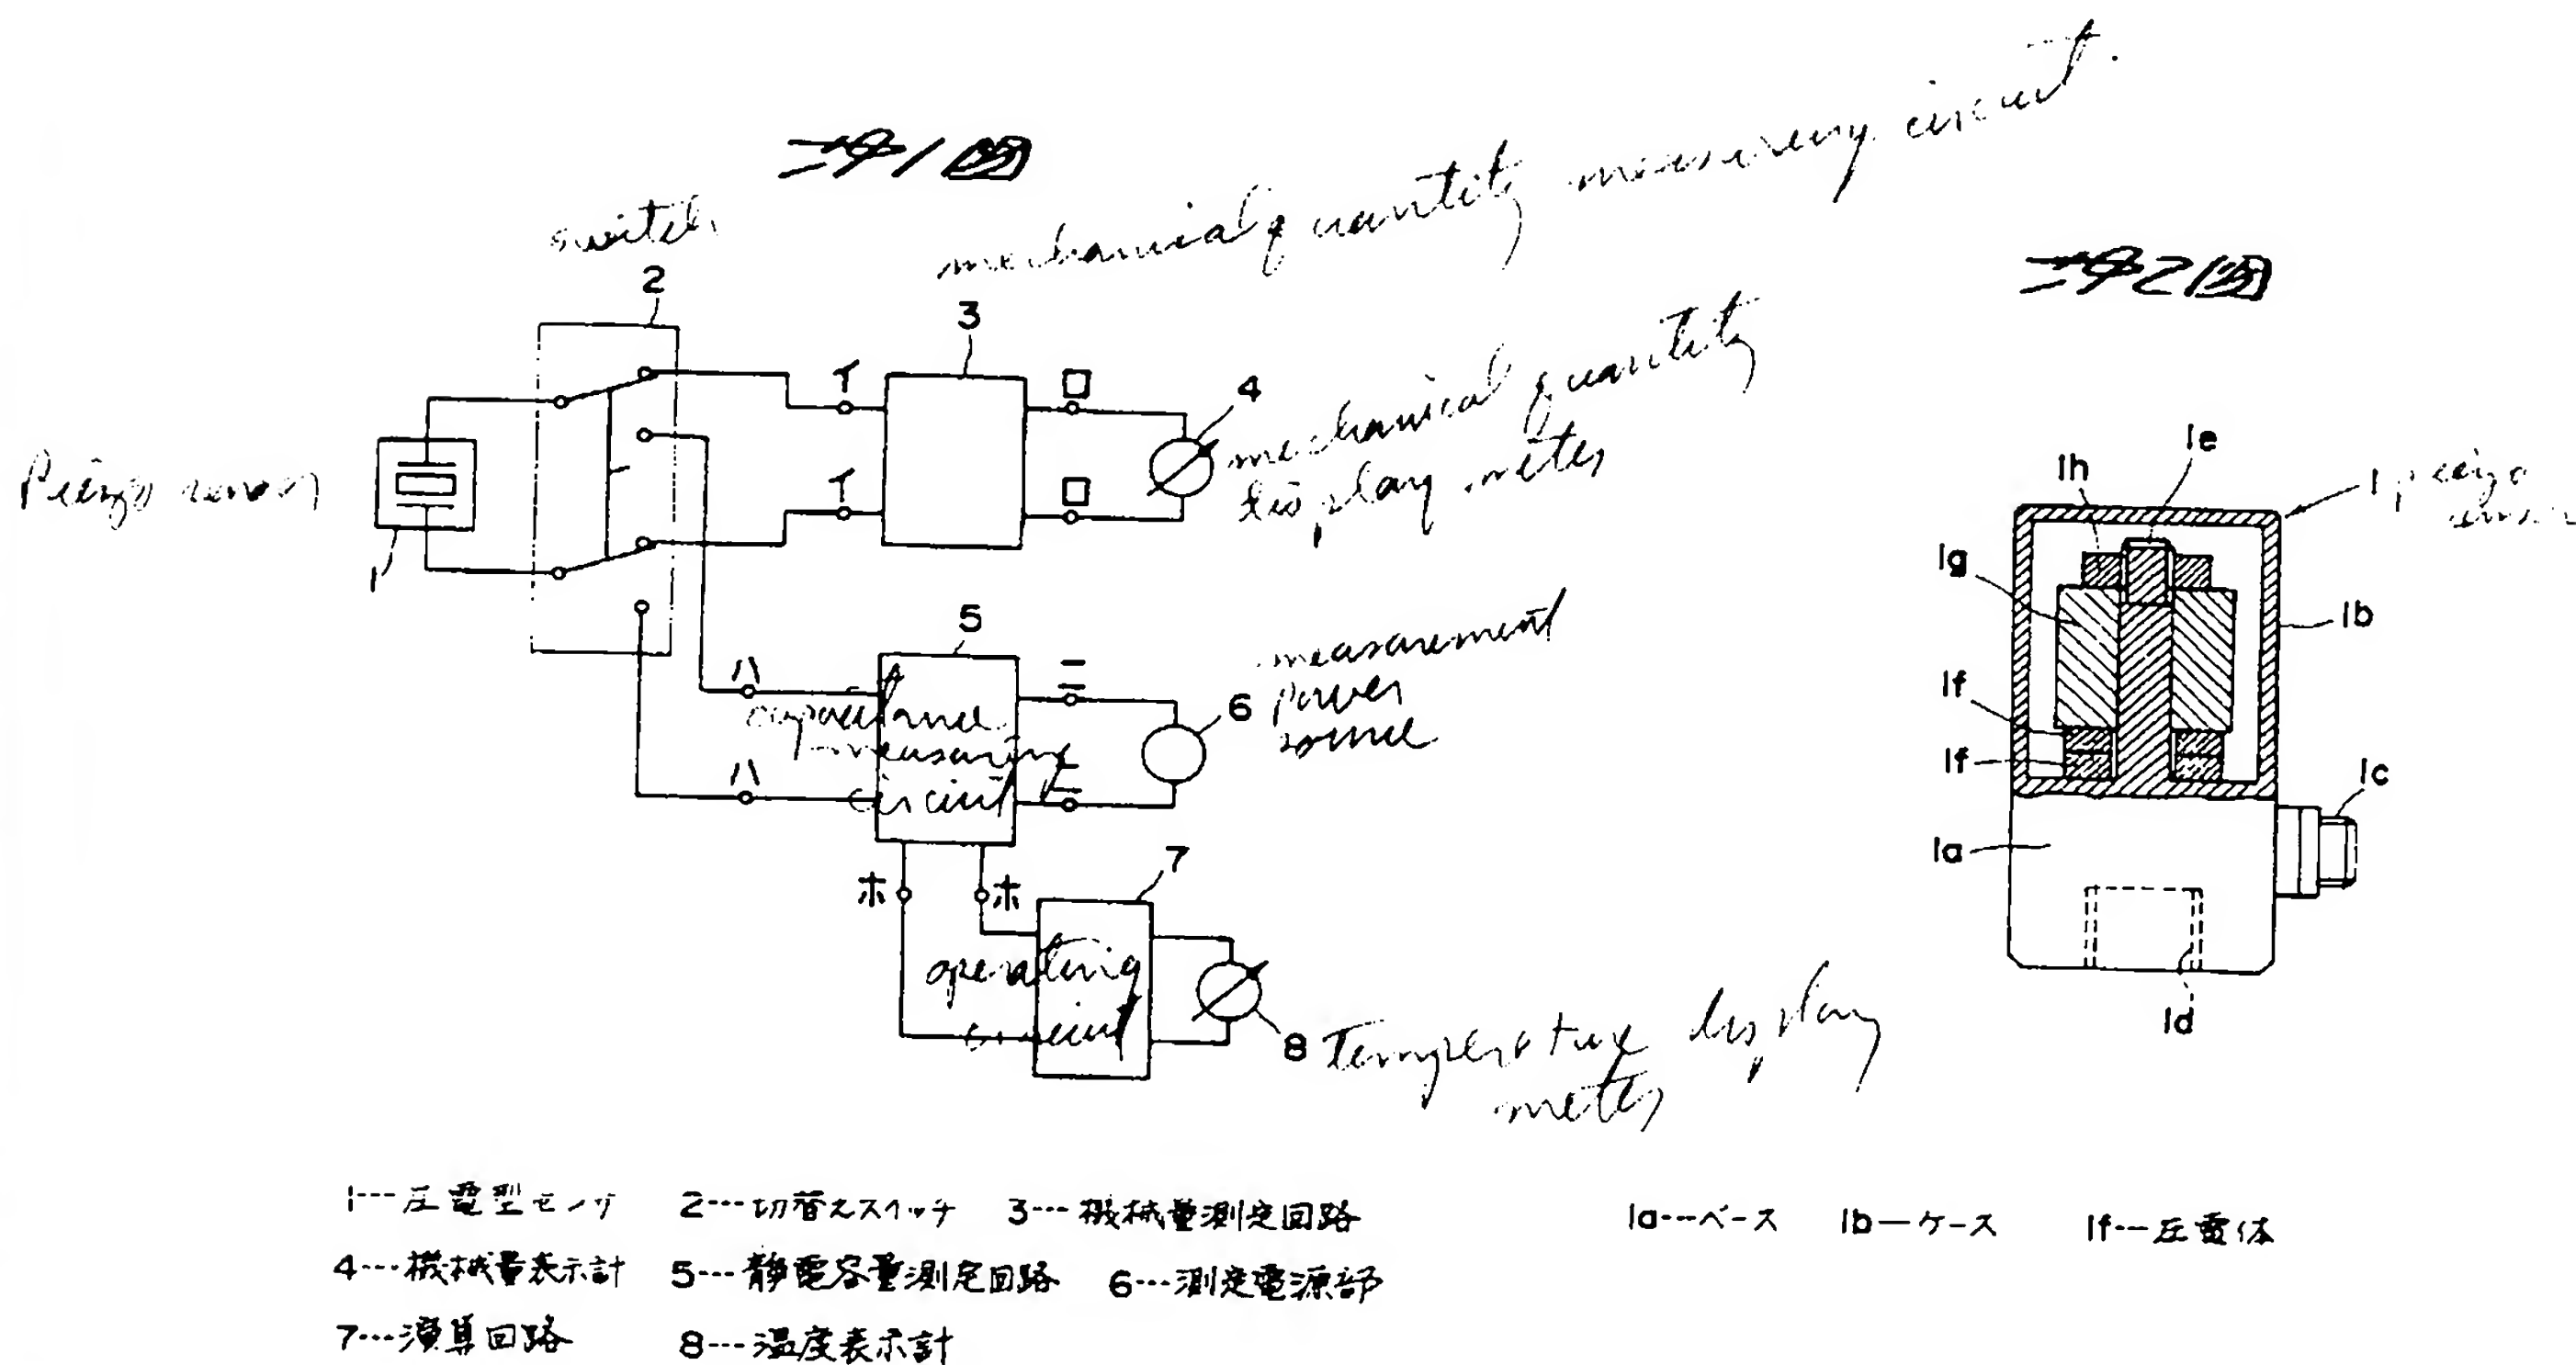 第1図
switch
2
mechanical quantity measuring circuit.
3
イ
ロ
4
mechanical quantity
display meter
イ
ロ
Piezo sensor
1
5
ハ
ニ
capacitance
measuring
circuit
6
measurement
power
source
ハ
ニ
ホ
ホ
7
operating
circuit
8
Temperature display
meter
第2図
1h
1e
1 piezo
sensor
1g
1b
1f
1f
1c
1a
1d
1---圧電型センサ 2---切替えスイッチ 3---機械量測定回路
4---機械量表示計 5---静電容量測定回路 6---測定電源部
7---演算回路 8---温度表示計
1a---ベース 1b—ケース 1f---圧電体